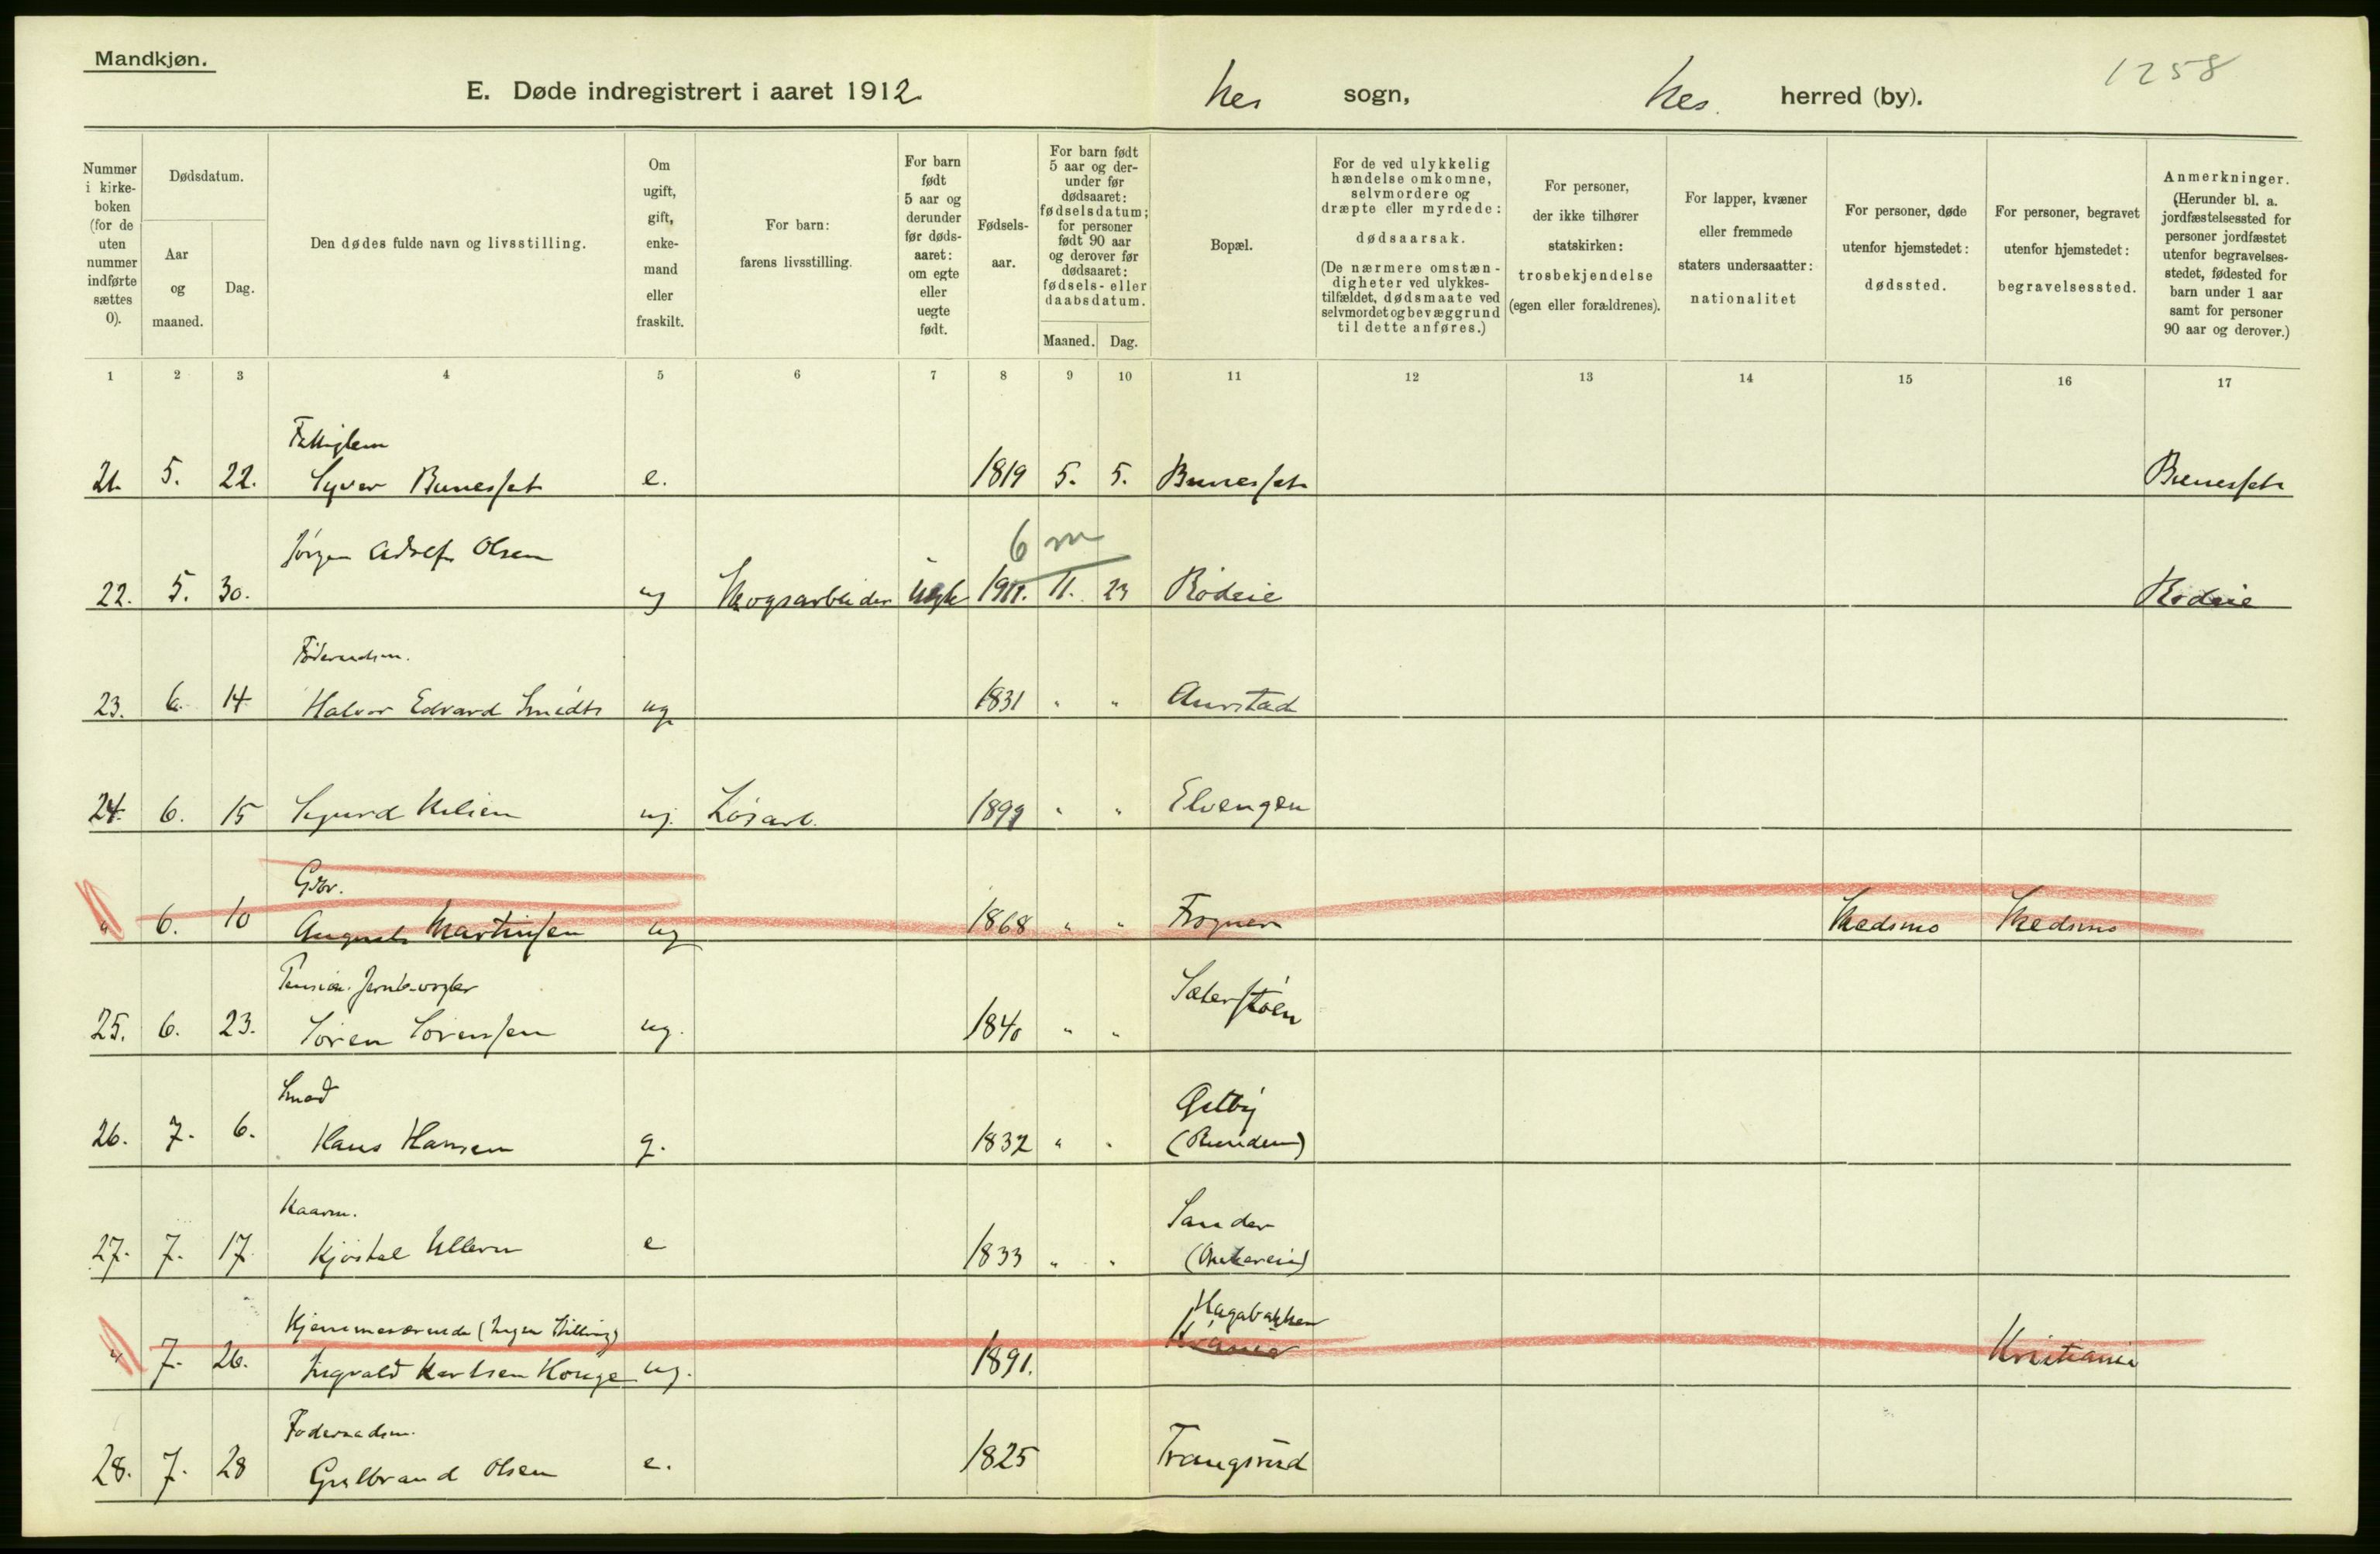 Mandkjøn.
1258
E. Døde indregistrert i aaret 1912. Nes sogn, Nes. herred (by).
Nummer i kirkeboken (for de uten nummer indførte sættes 0).
Dødsdatum.
Aar og maaned.
Dag.
Den dødes fulde navn og livsstilling.
Om ugift, gift, enkemand eller fraskilt.
For barn: farens livsstilling.
For barn født 5 aar og derunder før dødsaaret: om egte eller uegte født.
Fødselsaar.
For barn født 5 aar og derunder før dødsaaret: fødselsdatum; for personer født 90 aar og derover før dødsaaret: fødsels- eller daabsdatum.
Maaned. Dag.
Bopæl.
For de ved ulykkelig hændelse omkomne, selvmordere og dræpte eller myrdede: dødsaarsak. (De nærmere omstændigheter ved ulykkestilfældet, dødsmaate ved selvmordet og bevæggrund til dette anføres.)
For personer, der ikke tilhører statskirken: trosbekjendelse (egen eller forældrenes).
For lapper, kvæner eller fremmede staters undersaatter: nationalitet
For personer, døde utenfor hjemstedet: dødssted.
For personer, begravet utenfor hjemstedet: begravelsessted.
Anmerkninger. (Herunder bl. a. jordfæstelsessted for personer jordfæstet utenfor begravelsesstedet, fødested for barn under 1 aar samt for personer 90 aar og derover.)
1 2 3 4 5 6 7 8 9 10 11 12 13 14 15 16 17
Fattiglem
21. 5. 22. Syver Bunesset e. 1819 5. 5. Bunesset Bunesset
Jørgen Adolf Olsen 6 m
22. 5. 30. ug Skogsarbeider Uegte 1911. 11. 23 Rødeie Rødeie
Føderaadsm.
23. 6. 14 Halvor Edvard Smidts ug 1831 " " Aurstad
24. 6. 15 Sigurd Nilsen ug. Løsarb. 1899 " " Elvengen
Gbr.
" 6. 10 August Martinsen ug 1868 " " Frogner Skedsmo Skedsmo
Pension. Jernb.vogter
25. 6. 23. Søren Sørenssen ug. 1840 " " Sæterstøen
Smed
26. 7. 6. Hans Hansen g. 1832 " " (Runden)
Kaarm. Sander
27. 7. 17. Kjøstel Ullern e 1833 " "
Kjemmeværende (Ingen Stilling) Hagabakken
" 7. 26. Ingvald Karlsen Horge ug. 1891. Kristiania
Føderaadsm.
28. 7. 28 Gulbrand Olsen e. 1825 Trangsrud